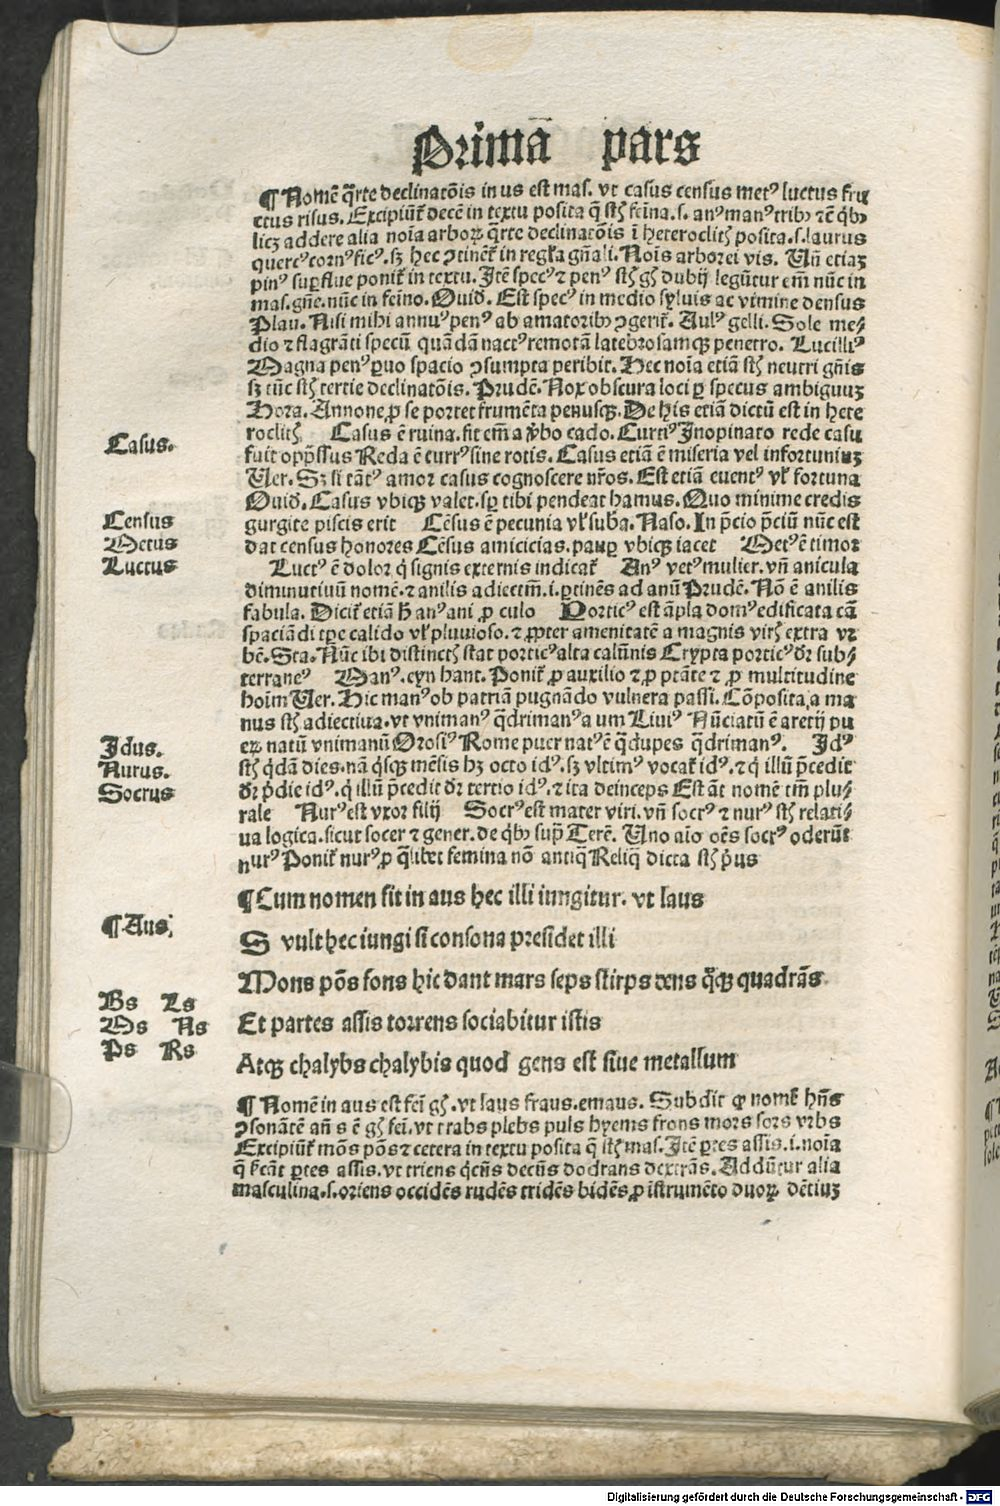 Primā pars
¶ Nomē q̄rte declinatōis in us est mas. vt casus census metꝰ luctus fru
ctus risus. Excipiūt̉ decē in textu posita q̄ st̄ feīna. s. anꝰ manꝰ tribꝫ ⁊ē q̄bꝫ
licꝫ addere alia noīa arboꝝ q̄rte declinatōis ī heteroclit̄ posita. s. laurus
quercꝰ cornꝰ ficꝰ. sꝫ hec ꝯtinēt̉ in regl̓a gn̄ali. Nois arborei vis. Un̄ etiaꝫ
pinꝰ suꝑflue ponit̉ in textu. Itē specꝰ ⁊ penꝰ st̄ gn̄ dubij legūtur em̄ nūc in
mas. gn̄e. nūc in feīno. Ouid̄. Est specꝰ in medio syluis ac vimine densus
Plau. Nisi mihi annuꝰ penꝰ ab amatoribꝫ ꝯgerit̉. Aulꝰ gelli. Sole me⸗
dio ⁊ flagrāti specū quādā nactꝰ remotā latebrosamqꝫ penetro. Lucilliꝰ
Magna penꝰ ꝑuo spacio ꝯsumpta peribit. Hec noīa etiā st̄ neutri gn̄is
sꝫ tūc st̄ tertie declinatōis. Prudē. Nox obscura loci ꝑ specus ambiguuꝫ
Hora. Annone ꝓ se portet frumēta penusqꝫ. De his etiā dictū est in hete
roclit̄ Casus ē ruina. fit em̄ a v̓bo cado. Curtiꝰ Inopinato rede casu
fuit opp̄ssus Reda ē currꝰ sine rotis. Casus etiā ē miseria vel infortuniuꝫ
Uer. Sꝫ si tātꝰ amor casus cognoscere nr̄os. Est etiā euentꝰ vl̓ fortuna
Ouid̄. Casus vbiqꝫ valet. sꝑ tibi pendeat hamus. Quo minime credis
gurgite piscis erit Cēsus ē pecunia vl̓ sub̄a. Naso. In p̄cio p̄ciū nūc est
dat census honores Cēsus amicicias. pauꝑ vbiqꝫ iacet Metꝰ ē timor
Luctꝰ ē dolor q̇ signis externis indicat̉ Anꝰ vetꝰ mulier. vn̄ anicula
diminutiuū nomē. ⁊ anilis adiectm̄. i. ꝑtinēs ad anū Prudē. Nō ē anilis
fabula. Dicit̉ etiā h̄ anꝰ ani ꝓ culo Porticꝰ est āpla domꝰ edificata cā
spaciādi tꝑe calido vl̓ pluuioso. ⁊ ꝓpter amenitatē a magnis vir̄ extra vr
bē. Sta. Nūc ibi distinct̄ stat porticꝰ alta calūnis Crypta porticꝰ dr̄ sub⸗
terraneꝰ Manꝰ. cyn hant. Ponit̉ ꝓ auxilio ⁊ ꝓ ptāte ⁊ ꝓ multitudine
hoīm Uer. Hic manꝰ ob patriā pugnādo vulnera passi. Cōposita a ma
nus st̄ adiectiua. vt vnimanꝰ q̄drimanꝰ a um Liuiꝰ Nūciatū ē aretij pu
eꝝ natū vnimanū Orosiꝰ Rome puer natꝰ ē q̄dupes q̄drimanꝰ. Idꝰ
st̄ q̇dā dies. nā q̇sqꝫ mēsis hꝫ octo idꝰ. sꝫ vltimꝰ vocat̉ idꝰ. ⁊ q̇ illū p̄cedit
dr̄ p̓die idꝰ. q̇ illū p̄cedit dr̄ tertio idꝰ. ⁊ ita deinceps Est āt nomē tm̄ plu⸗
rale Nurꝰ est vxor filij Socrꝰ est mater viri. vn̄ socrꝰ ⁊ nurꝰ st̄ relati⸗
ua logica. sicut socer ⁊ gener. de q̇bꝫ sup̄ Terē. Uno aīo oēs socrꝰ oderūt
nurꝰ Ponit̉ nurꝰ ꝓ q̄libet femina nō antiq̄ Reliq̄ dicta st̄ p̓us
¶ Cum nomen fit in aus hec illi iungitur. vt laus
S vult hec iungi si consona presidet illi
Mons pōs fons hic dant mars seps stirps dens q̇qꝫ quadrās
Et partes assis torrens sociabitur istis
Atqꝫ chalybs chalybis quod gens est siue metallum
¶ Nomē in aus est feī gn̄. vt laus fraus. emaus. Subdit ꝙ nomē hn̄s
ꝯsonātē an̄ s ē gn̄ feī. vt trabs plebs puls hyems frons mors sors vrbs
Excipiūt̉ mōs pōs ⁊ cetera in textu posita q̄ st̄ mas. Itē ꝑtes assis. i. noīa
q̄ s̓cāt ꝑtes assis. vt triens q̇cūs decūs dodrans dextrās. Addūtur alia
masculina. s. oriens occidēs rudēs tridēs bidēs ꝓ īstrumēto duoꝝ dētiuꝫ
Casus.
Census
Metus
Luctus
Idus.
Nurus.
Socrus
¶ Aus.
Bs Ls
Ms Ns
Ps Rs
Digitalisierung gefördert durch die Deutsche Forschungsgemeinschaft - DFG